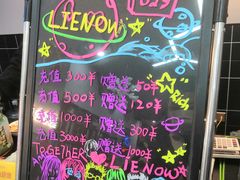 LIENOW
充值300¥ 赠送50¥
充值500¥ 赠送120¥
充值1000¥ 赠送300¥
充值3000¥ 赠送1000¥
TOGETHER
LIENOW